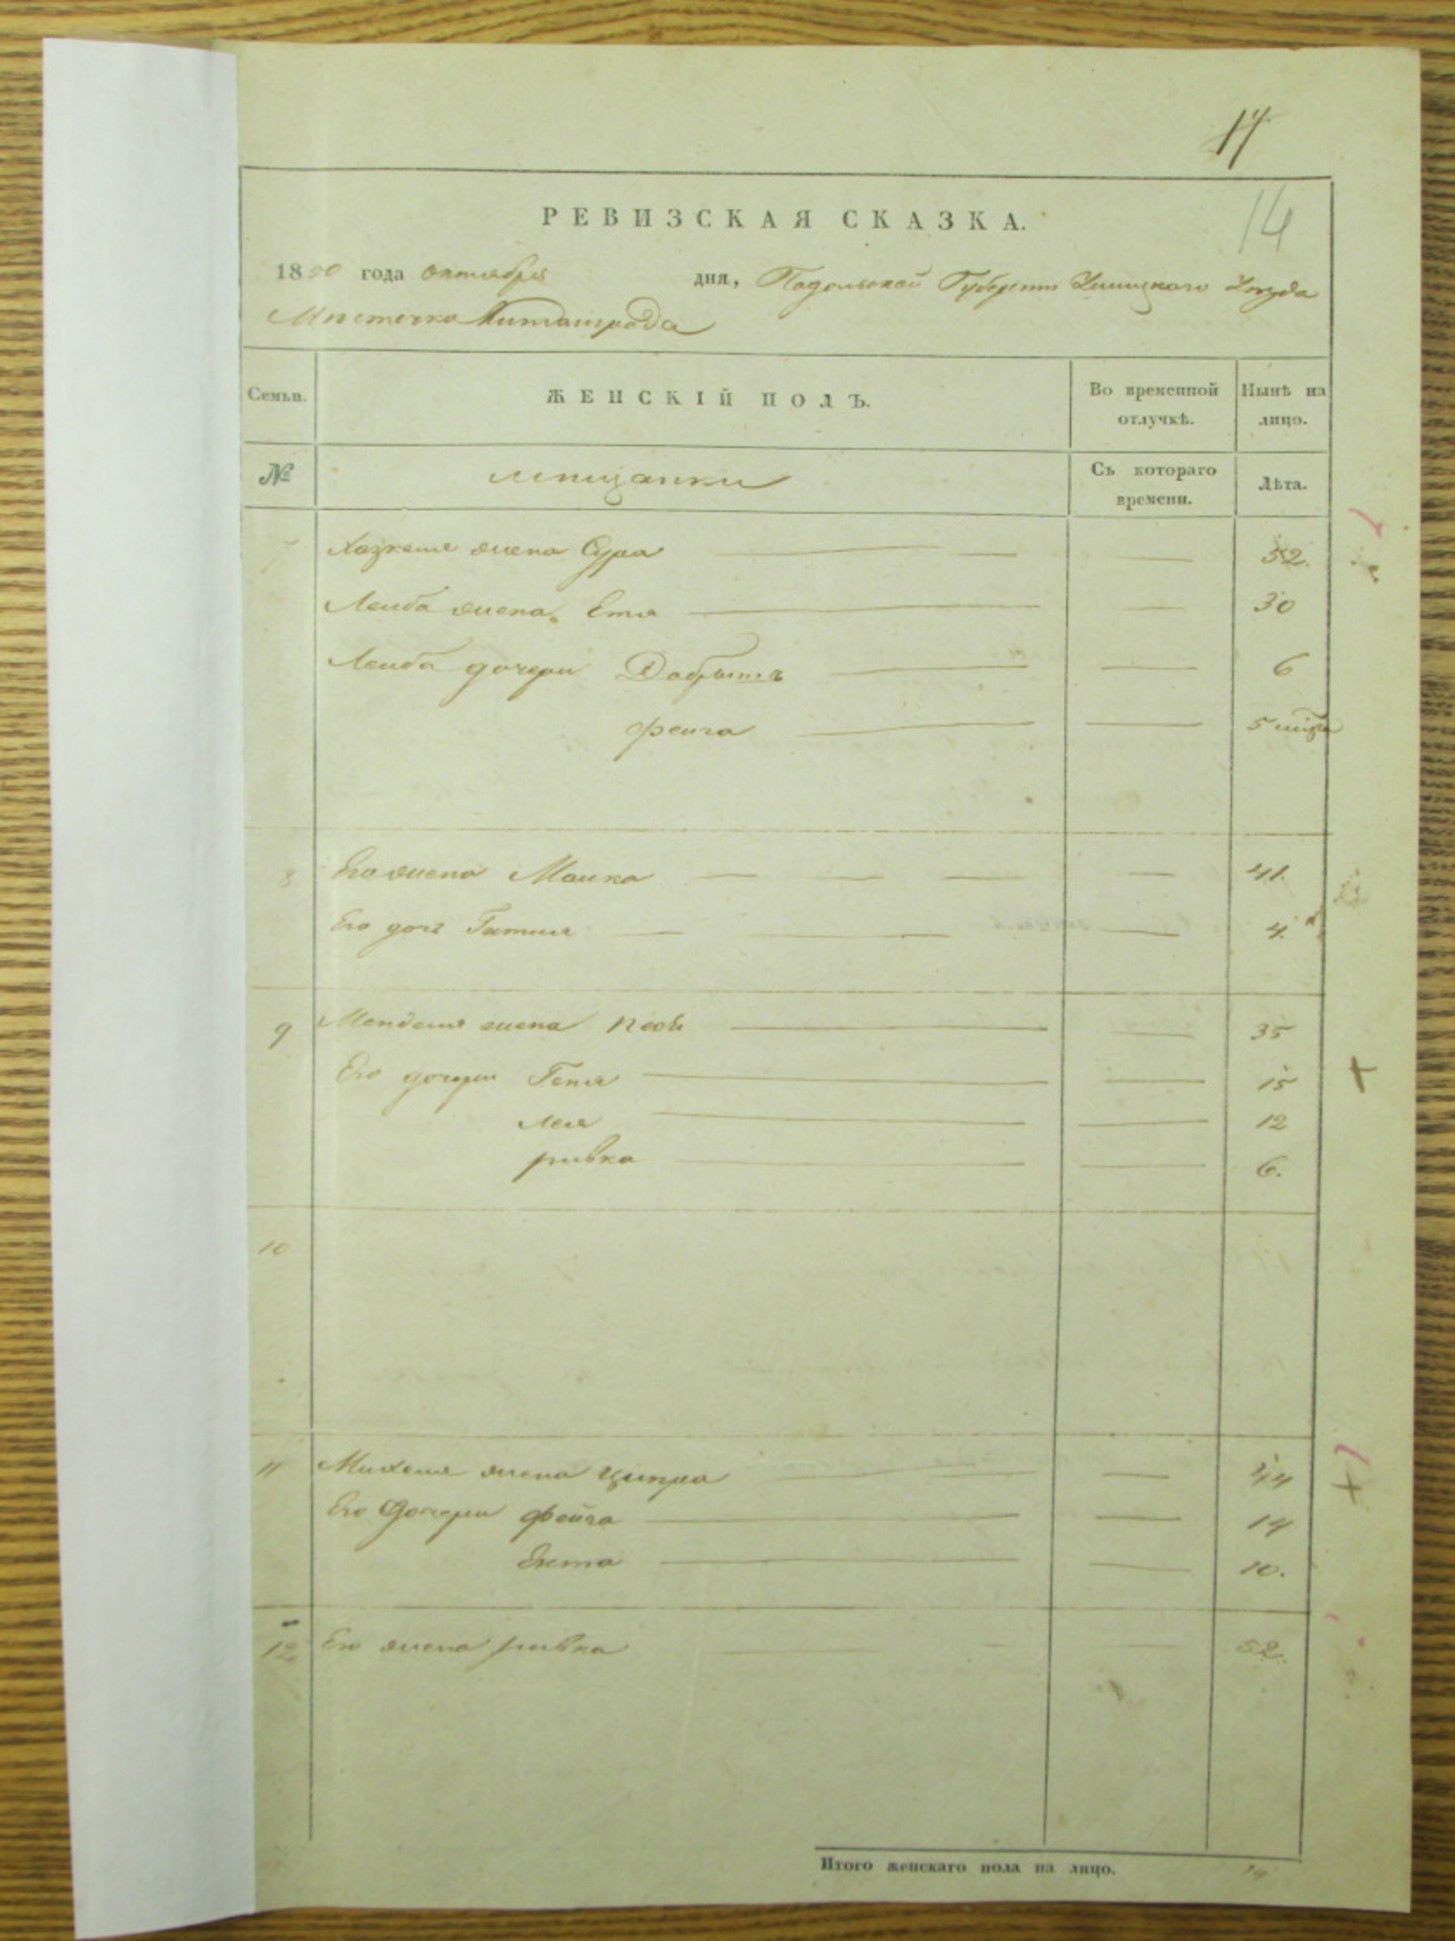 14
14
РЕВИЗСКАЯ СКАЗКА.
1850 года октября дня, Подольской Губернии Ушицкого Уезда
Местечка Миньковец
Семьи. ЖЕНСКІЙ ПОЛЪ. Во временной отлучкѣ. Нынѣ на лицо.
№ мещанки Съ котораго времени. Лѣта.
7 жена Сура 52.
Лейба жена Етя 30
Лейба дочери 6
Фейга 5
8 Его жена Малка 41.
Его дочь 4.
9 Менделя жена 35
Его дочери Геня 15
Лея 12
ривка 6.
10
11 Михеля жена Ципра 44
Его Дочери Фейга 14
Ента 10.
12 Его жена ривка 52.
Итого женскаго пола на лицо. 14